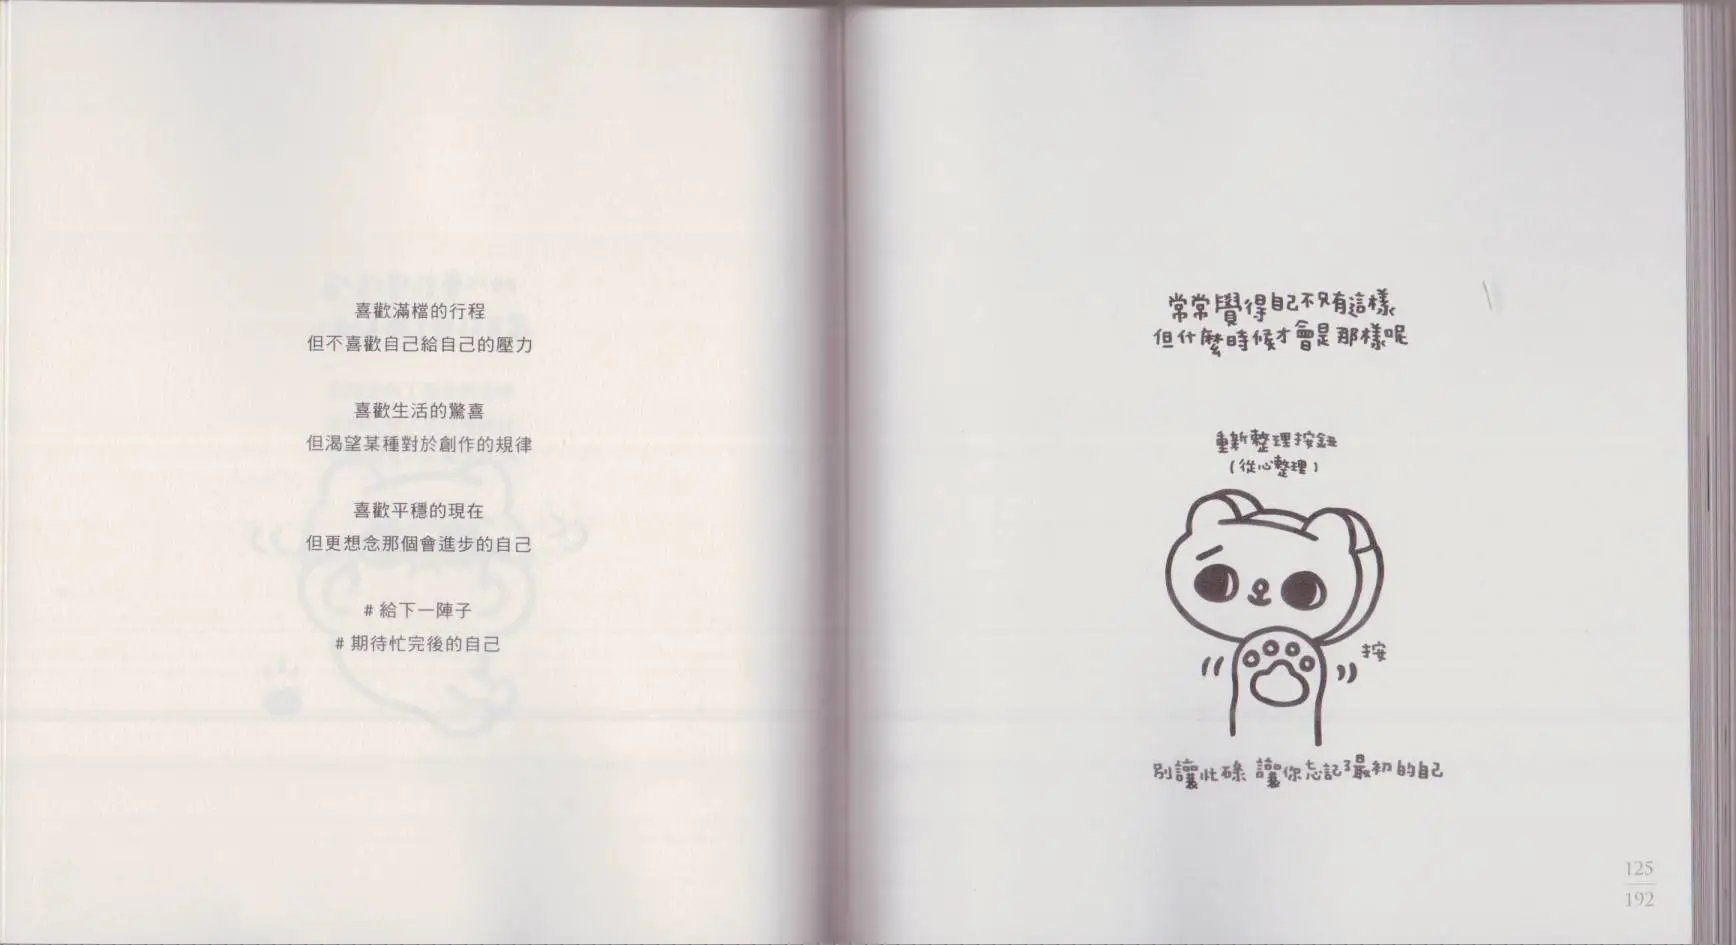 喜歡滿檔的行程
但不喜歡自己給自己的壓力
喜歡生活的驚喜
但渴望某種對於創作的規律
喜歡平穩的現在
但更想念那個會進步的自己
# 給下一陣子
# 期待忙完後的自己
常常覺得自己不只有這樣
但什麼時候才會是那樣呢
重新整理按鈕
(從心整理)
按
別讓忙碌 讓你忘記了最初的自己
125
192